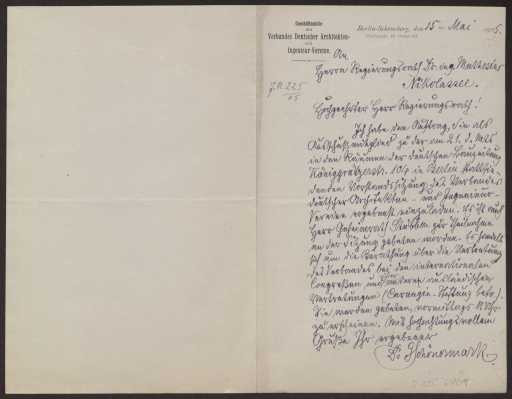 Geschäftsstelle
des
Verbandes Deutscher Architekten-
und
Ingenieur-Vereine.
Berlin-Schöneberg, den 15ten Mai 1905.
J.N. 225/05
An
Herrn Regierungsrath Dr. ing. Muthesius
Nikolassee.
Hochgeehrter Herr Regierungsrath!
Ich habe den Auftrag, Sie als
Ausschußmitglied zu der am 21. d. Mts
in den Räumen der deutschen Bauzeitung
Königgrätzerstr. 104 in Berlin stattfin-
denden Vorstandssitzung des Verbandes
deutscher Architekten- und Ingenieur-
Vereine ergebenst einzuladen. Es ist auch
Herr Geheimrath Stübben zur Theilnahme
an der Sitzung gebeten worden. Es handelt
sich um die Berathung über die Vertretung
des Verbandes bei den internationalen
Congressen und anderen ausländischen
Vertretungen (Carnegie-Stiftung betr.).
Sie werden gebeten, vormittags Uhr
zu erscheinen. Mit hochachtungsvollem
Gruße Ihr ergebener
Dr. Schönermark.